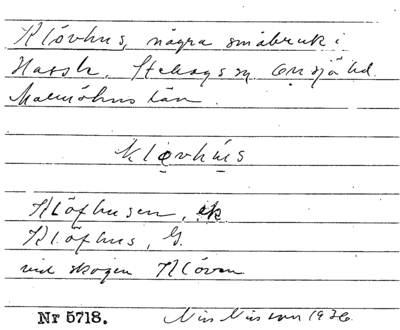 Klövhus, några småbruk i
Hassk. Stehags sn. Onsjö hd.
Malmöhus län.
klo̤vhús
Klöfhusen, ek
Klöfhus, G.
vid skogen Klöven
Nr 5718. Nils Nilsson 1936.